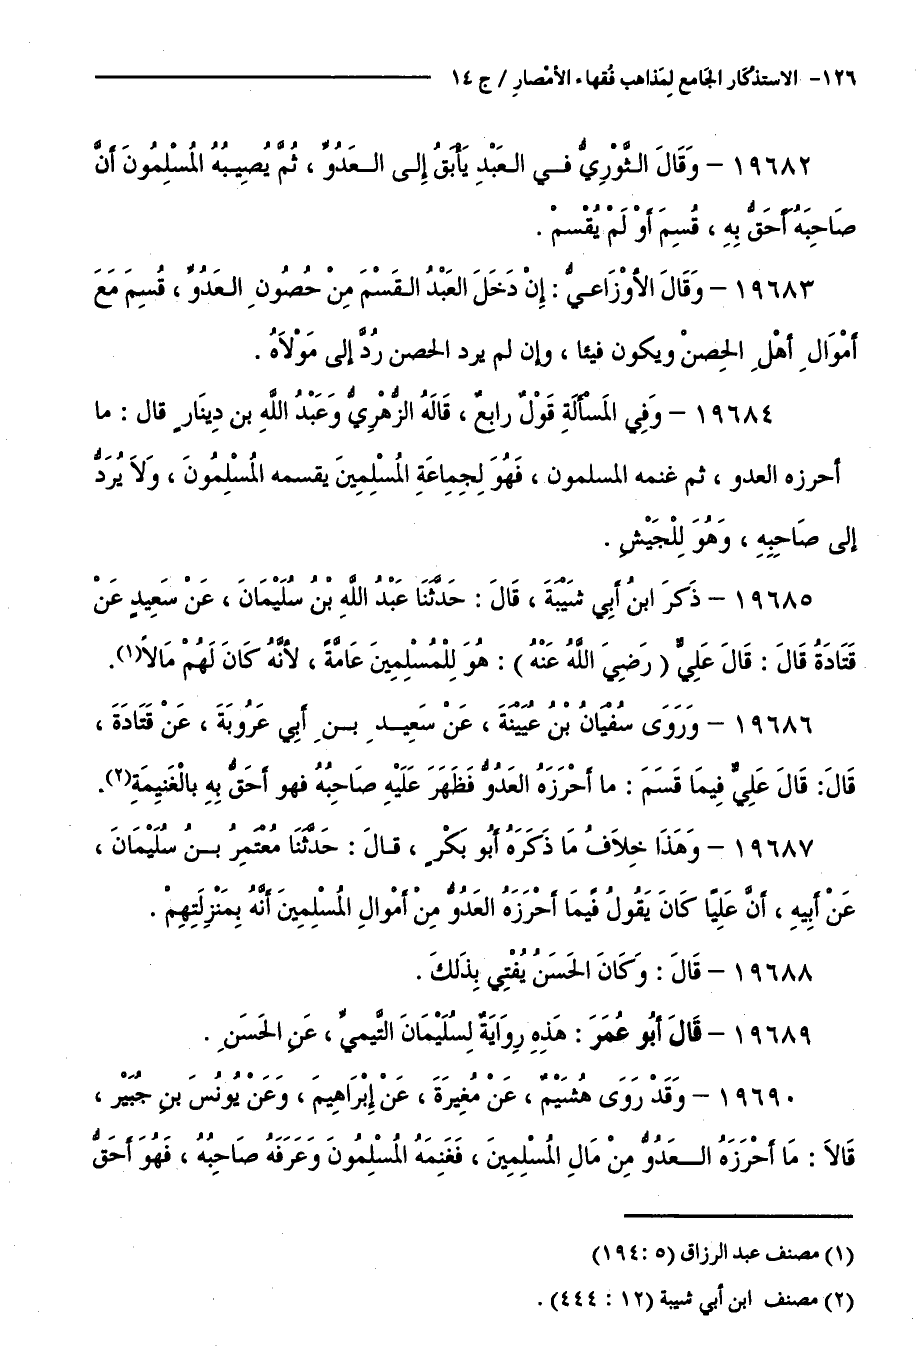 ١٢٦- الاستذْكَار الجَامع لِمَذاهب فُقهاء الأمْصارِ / ج ١٤
١٩٦٨٢ – وَقَالَ الـثَّوْرِيُّ فـي العَبْدِ يَأبَقُ إِلـى الـعَدُوِّ ، ثُمَّ يُصِيـبُهُ المُسْلِمُونَ أنَّ
صَاحِبَهُ أَحَقُّ بِهِ ، قُسِمَ أَوْ لَمْ يُقْسمْ .
١٩٦٨٣ – وَقَالَ الأوْزَاعـيُّ : إِنْ دَخَلَ العَبْدُ الـقَسْمَ مِنْ حُصُونِ العَدُوِّ ، قُسِمَ مَعَ
أمْوَالِ أهْلِ الحِصنْ ويكون فيئا ، وإن لم يرد الحصن رُدَّ إلى مَوْلاَهُ .
١٩٦٨٤ – وَفِي المَسْألَةِ قَوْلٌ رابعٌ ، قَالَهُ الزُّهْرِيُّ وَعَبْدُ اللَّهِ بن دِينَارٍ قال : ما
أحرزه العدو ، ثم غنمه المسلمون ، فَهُوَ لِجماعَةِ المُسْلِمِينَ يقسمه المُسْلِمُونَ ، وَلاَ يُرَدُّ
إلى صَاحِبِهِ ، وَهُوَ لِلْجَيْشِ .
١٩٦٨٥ – ذَكرَ ابنُ أَبِي شَيْبَةَ ، قَالَ : حَدَّثَنَا عَبْدُ اللَّهِ بْنُ سُلَيْمَانَ ، عَنْ سَعِيدٍ عَنْ
قَتَادَةُ قَالَ : قَالَ عَلِيٌّ ( رَضِيَ اللَّهُ عَنْهُ ) : هُوَ لِلْمُسْلِمِينَ عَامَّةً ، لأنَّهُ كَانَ لَهُمْ مَالاً(١).
١٩٦٨٦ – وَرَوَى سُفْيَانُ بْنُ عُيَيْنَةَ ، عَنْ سَعِيـدِ بـنِ أَبِي عَرُوبَةَ ، عَنْ قَتَادَةَ ،
قَالَ: قَالَ عَلِيٌّ فِيمَا قَسَمَ : ما أَحْرَزَهُ العَدُوُّ فَظَهَرَ عَلَيْهِ صَاحِبُهُ فهو أحَقُّ بِهِ بالْغَنِيمَةِ(٢).
١٩٦٨٧ – وَهَذَا خِلاَفُ مَا ذَكَرَهُ أَبُو بَكْرٍ ، قـالَ : حَدَّثَنَا مُعْتَمِرُ بـنُ سُلَيْمَانَ ،
عَنْ أَبِيهِ ، أنَّ عَلِيًّا كَانَ يَقُولُ فِيمَا أَحْرَزَهُ العَدُوُّ مِنْ أَموالِ المُسْلِمِينَ أَنَّهُ بِمَنْزِلَتِهِمْ .
١٩٦٨٨ – قَالَ : وَكَانَ الحَسَنُ يُفْتِي بِذَلكَ .
١٩٦٨٩ – قَالَ أَبُو عُمَرَ : هَذِهِ رِوَايَةٌ لِسُلَيْمَانَ التَّيميِّ ، عَنِ الحَسَنِ .
١٩٦٩٠ – وَقَدْ رَوَى هُشَيْمٌ ، عَنْ مُغِيرَةَ ، عَنْ إِبْرَاهِيمَ ، وَعَنْ يُونُسَ بنِ جُبَيْرِ ،
قَالاَ : مَا أَحْرَزَهُ الـــعَدُوُّ مِنْ مَالِ المُسْلِمِينَ ، فَغَنِمَهُ المُسْلِمُونَ وَعَرَفَه صاحِبُهُ ، فَهُوَ أحَقُّ
(١) مصنف عبد الرزاق (٥ :١٩٤)
(٢) مصنف ابن أبي شيبة (١٢ : ٤٤٤) .